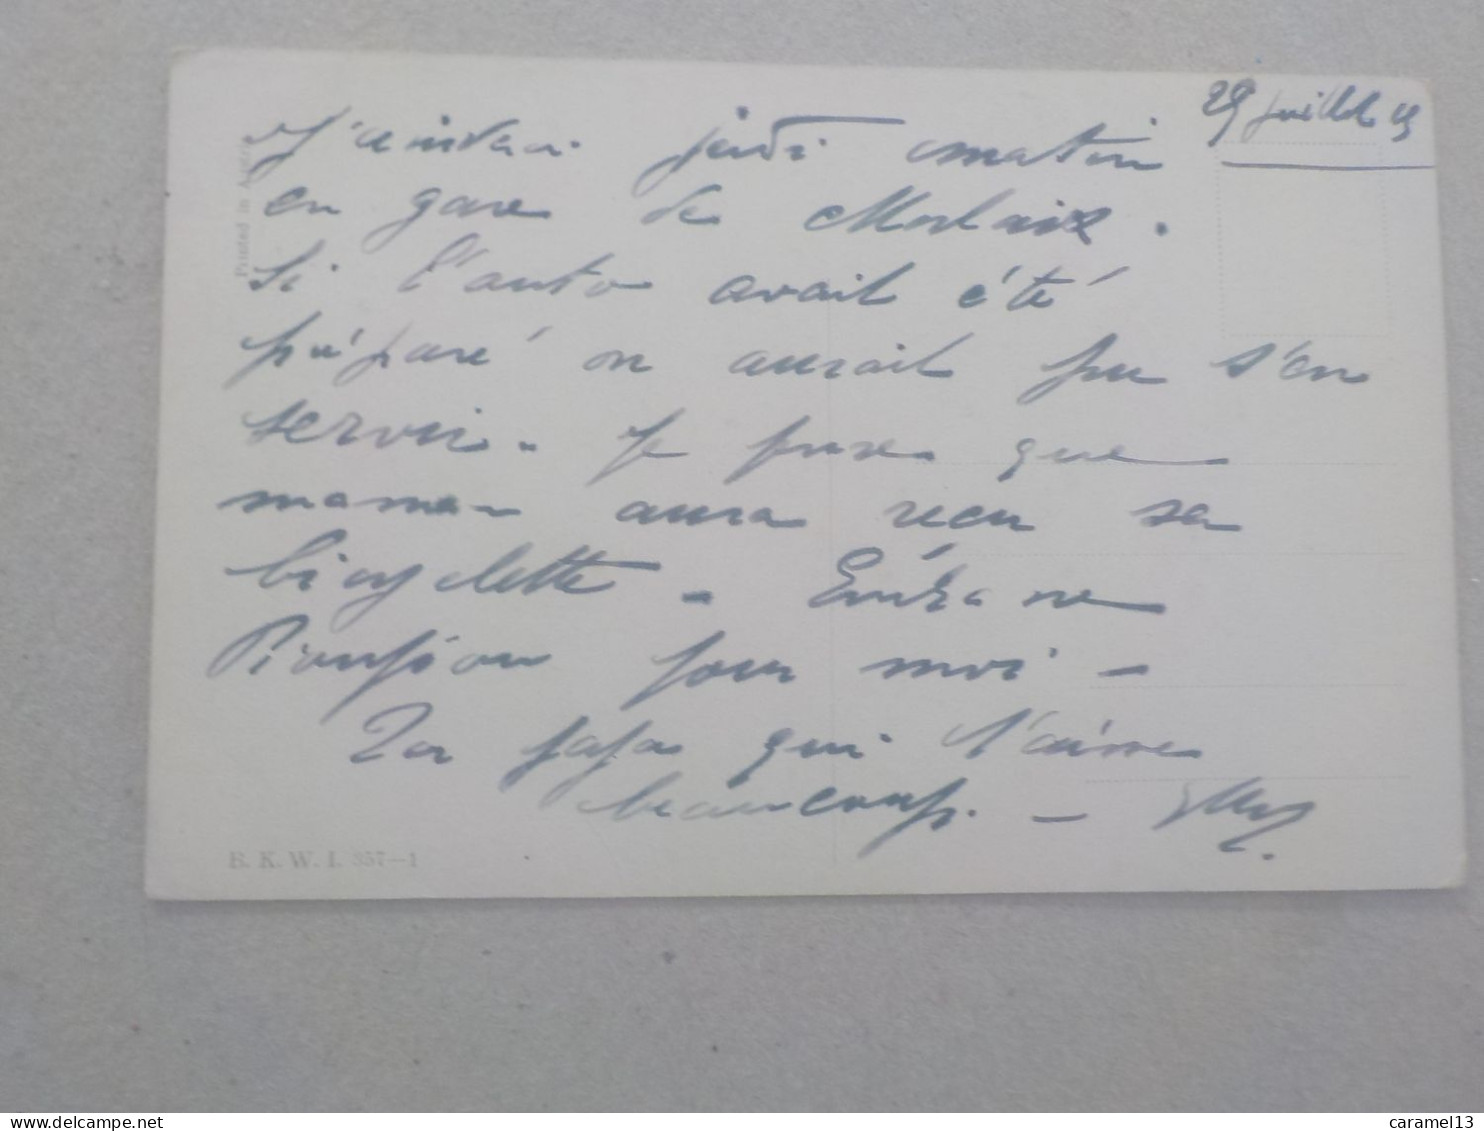 29 juillet
jeudi matin
en gare de Morlaix.
Si l'auto avait été
préparé on aurait pu s'en
servir. Je pense que
maman aura reçu sa
bicyclette. Embrasse
pour moi -
Ton papa qui t'aime
beaucoup. -
Printed in
B. K. W. I. 357-1
delcampe.net
caramel13